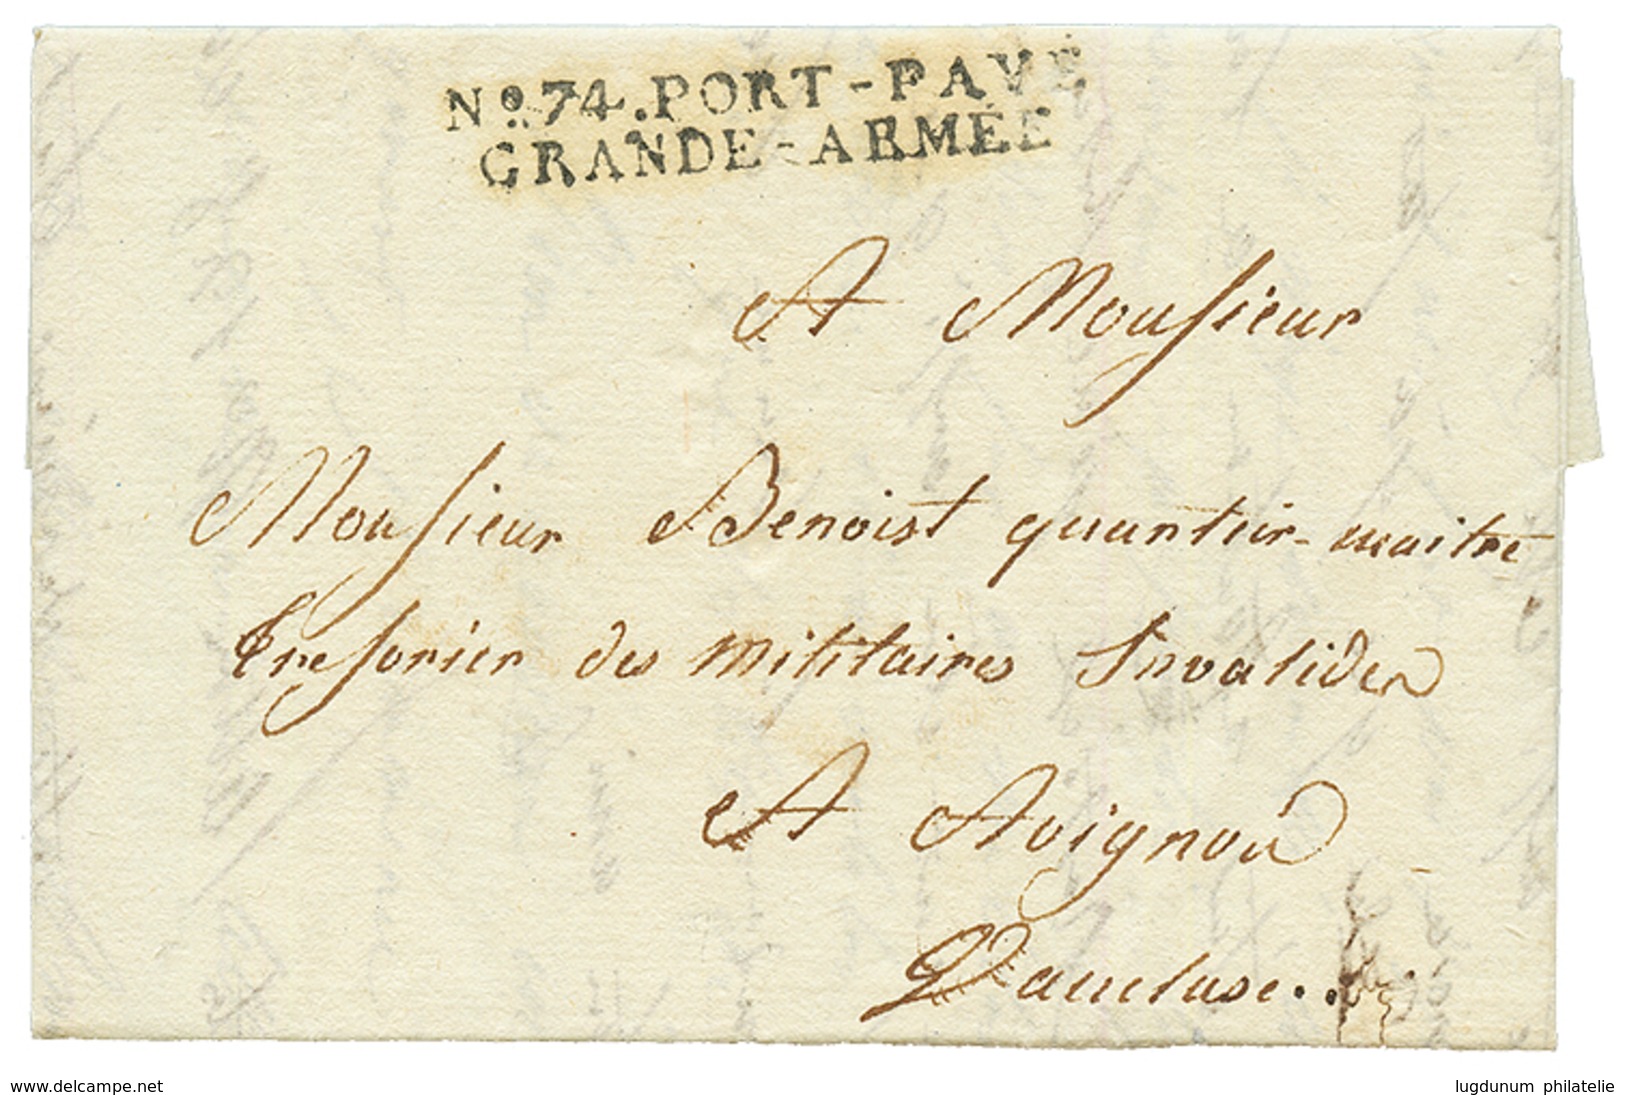 No. 74. PORT-PAYÉ
GRANDE-ARMÉE
A Monsieur
Monsieur Benoist quartier-maitre
Tresorier des militaires Invalides
A Avignon
Vaucluse..
www.delcampe.net
lugdunum philatelie